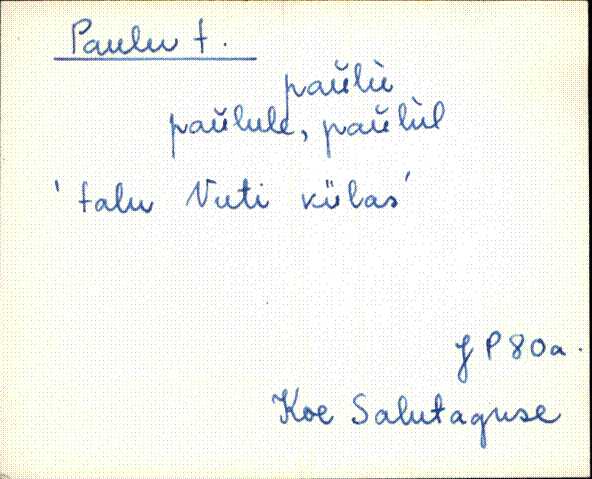 Paulu t.
paŭlù
paŭlule, paŭlùl
'talu Vuti külas'
J P 80a.
Koe Salutaguse